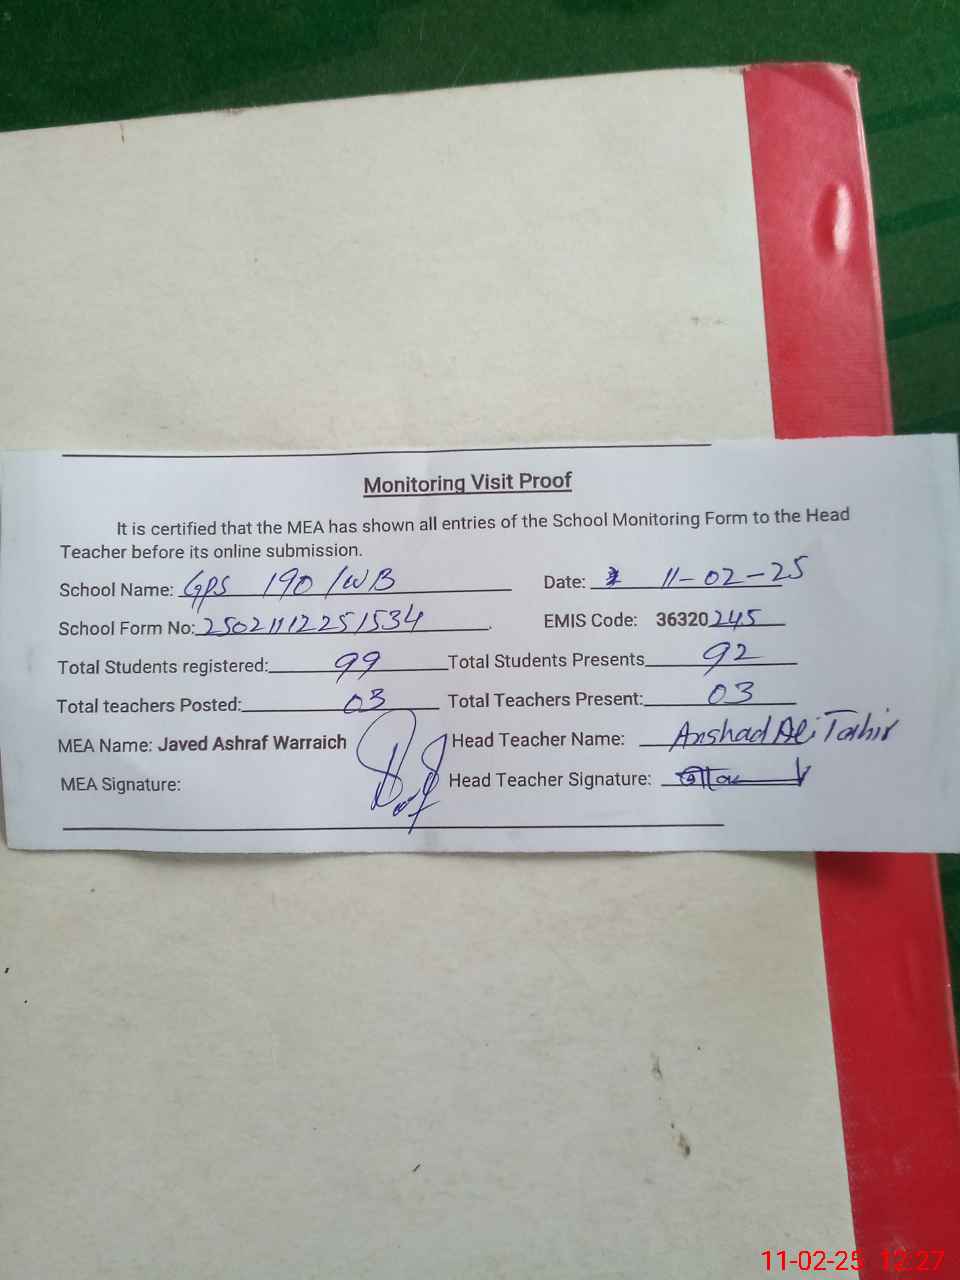 Monitoring Visit Proof
It is certified that the MEA has shown all entries of the School Monitoring Form to the Head
Teacher before its online submission.
School Name: GPS 190/WB Date: 11-02-25
School Form No: 25021112251534 EMIS Code: 36320245
Total Students registered: 99 Total Students Presents 92
Total teachers Posted: 03 Total Teachers Present: 03
MEA Name: Javed Ashraf Warraich Head Teacher Name: Arshad Ali Tahir
MEA Signature: Head Teacher Signature:
11-02-25 12:27